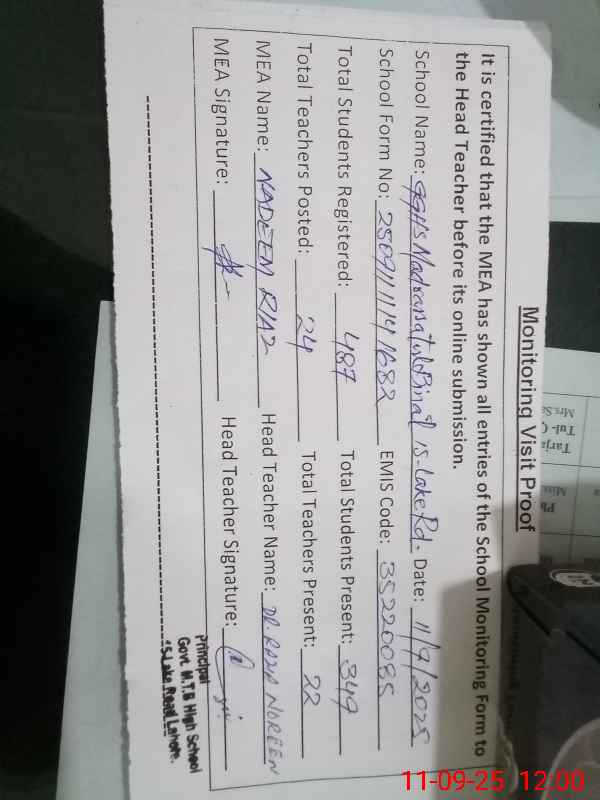 Monitoring Visit Proof
It is certified that the MEA has shown all entries of the School Monitoring Form to
the Head Teacher before its online submission.
School Name: GGHS Madrasatul Binat 15-Lake Rd. Date: 11/9/2025
School Form No: 2509111141682 EMIS Code: 35220085
Total Students Registered: 487 Total Students Present: 349
Total Teachers Posted: 24 Total Teachers Present: 22
MEA Name: NADEEM RIAZ Head Teacher Name: DR. RAZIA NOREEN
MEA Signature: Head Teacher Signature:
Principal
Govt. M.T.B High School
15-Lake Road Lahore.
Tarj
Tul-Q
Mrs.Sa
Miss.
11-09-25 12:00